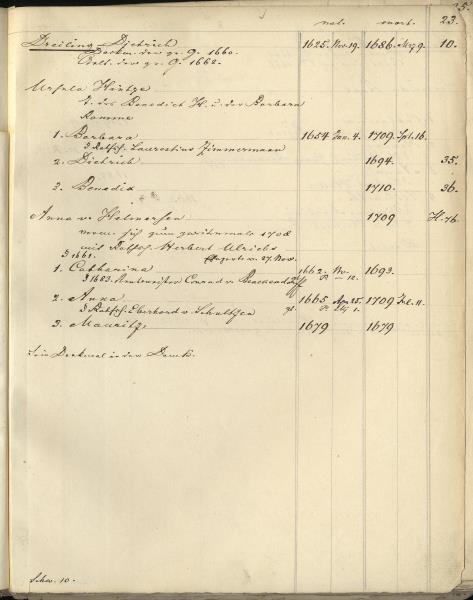 5.
nat. mort. 23.
Dreiling Dietrich 1625. Nov. 19. 1686. Mrz. 9. 10.
Dockm. der gr. G. 1660.
Aelt. der gr. G. 1662.
Ursula Hintze
T. des Benedict H. u. der Barbara
Ramme
1. Barbara 1654 Jan. 4. 1709. Spt. 16.
Rathsh. Laurentius Zimmermann
2. Dietrich 1694. 35.
3. Benedix 1710. 36.
Anna v. Helmersen 1709 H. 76.
verm. sich zum zweitenmale 1708
mit Rathsh. Herbert Ulrichs
1661. 27. Nov.
1. Catharina 1662. Nv. 12. 1693.
1683. Conrad v.
2. Anna 1665 Apr. 25. 1709 Feb. 11.
Rathsh. Eberhard v. Schultzen 1.
3. Mauritz 1679 1679
Sein Denkmal in der Domk.
Schw. 10.